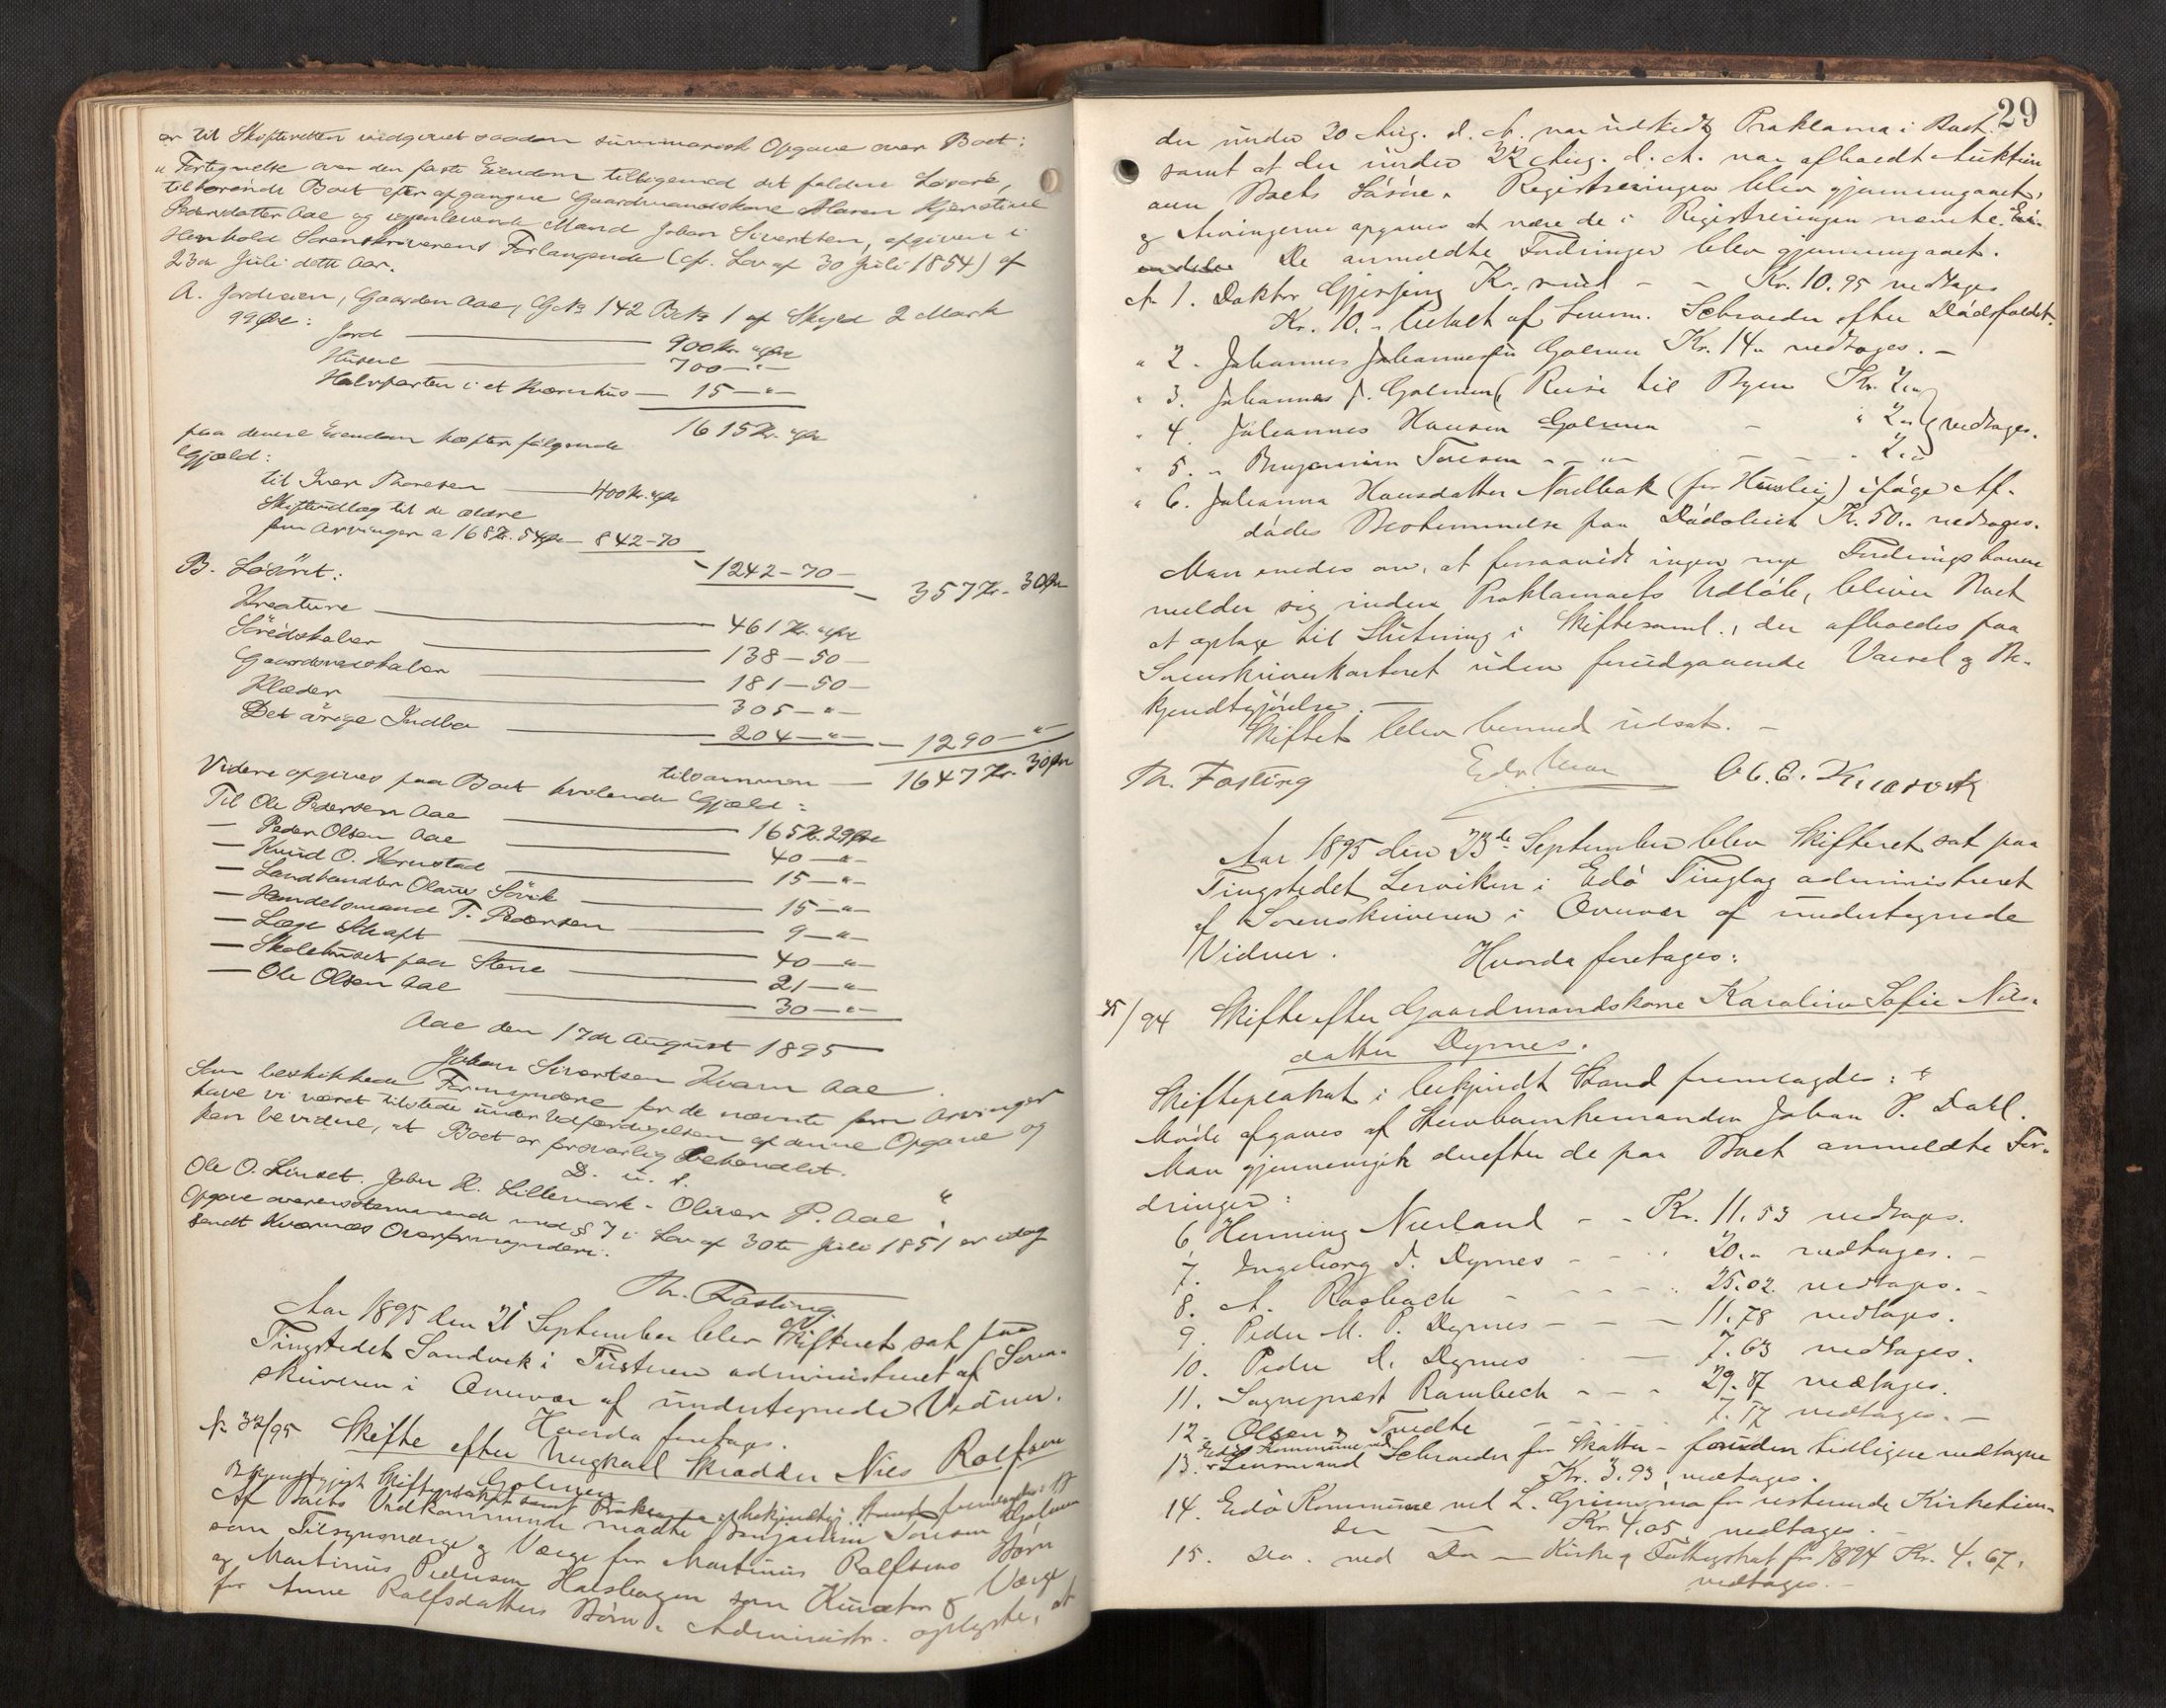 er til Skifteretten indgivet saadan summarisk Opgave over Boet:
"Fortegnelse over den faste Eiendom tilligemed det faldne Løsøre,
tilhørende Boet efter afgangne Gaardmandskone Maren Kjerstine
Pedersdatter Aae og igjenlevende Mand Johan Sivertsen, afgiven i
Henhold Sorenskriverens Forlangende (cfr. Lov af 30 Juli 1854) af
23de Juli dette Aar.
A. Jordveien, Gaarden Aae, G.No 142 B.No 1 af Skyld 2 Mark
99 Øre:
Jord — 900 Kr. " Øre
Husene — 700 — " —
Halvparten i et Kværnhus — 15 — " —
1615 Kr. " Øre
paa denne Eiendom hæfter følgende
Gjæld:
til Iver Thoresen — 400 Kr. " Øre
Skifteudlæg til de ældre
fem Arvinger a 168 Kr. 54 Øre — 842 - 70
- 1242 - 70 —
— 357 Kr. 30 Øre
B. Løsøret:
Kreature — 461 Kr. " Øre
Søredskaber — 138 - 50 —
Gaardsredskaber — 181 - 50 —
Klæder — 305 - " —
Det øvrige Indbo — 204 - " — 1290 - "
tilsammen — 1647 Kr. 30 Øre
Videre opgives paa Boet hvilende Gjæld:
Til Ole Pedersen Aae — 165 Kr. 29 Øre
— Peder Olsen Aae — 40 - " -
— Knud O. Hernstad — 15 - " -
— Landhandler Olaus Sørvik — 15 - " -
— Handelsmand T. Pedersen — 9 - " -
— Læge Skaft — 40 - " -
— Skolehuset paa Stene — 21 - " -
— Ole Olsen Aae — 30 - " -
Aae den 17de August 1895
Johan Sivertsen Kvern Aae
Som beskikkede Formyndere for de nævnte fem Arvinger
have vi været tilstede under Udfærdigelsen af denne Opgave og
kan bevidne, at Boet er forsvarlig behandlet.
D. u. s.
Ole O. Linset. John K. Lillemark. Oliver P. Aae "
Opgave overensstemmende med § 7 i Lov af 30te Juli 1851 er idag
sendt Kværnæs Overformynderi.
Th. Fasting
Aar 1895 den 21 September blev Skifteret sat paa
Tingstedet Sandvik i Tustern administreret af Soren-
skriveren i Overvær af undertegnede Vidner.
Hvorda foretages.
No 32/95 Skifte efter Ungkarl Skrædder Nils Rolfsen
Golmen
Bekjentgjort Skifteplakat samt Proklama
Af Boets Vedkommende mødte Benjamin Toresen Golmen
som Tilsynsværge og Værge for Martinus Rolfsens Børn
og Martinus Pedersen Halshagen som Kurator og Værge
for Anne Rolfsdatters Børn. Administr. oplyste, at
29
der under 20 Aug. d. A. var udstedt Proklama i Boet.
samt at der under 22 Aug. d. A. var afholdt Auktion
over Boets Løsøre. Registreringen blev gjennemgaaet,
og Arvingerne opgaves at være de i Registreringen nævnte.
De anmeldte Fordringer blev gjennemgaaet.
No 1. Doktor Gjersing Kr. - - Kr. 10.95 vedtages
Kr. 10. - betalt af Lensm. Schrøder efter Dødsfaldet.
" 2. Johannes Johannesen Golmen Kr. 14 " vedtages. -
" 3. Johannes J. Golmen (Reise til Byen Kr. 2 "
" 4. Johannes Hansen Golmen - " 2 " vedtages.
" 5. " Benjamin Toresen - " - - - " 2 "
" 6. Johanna Hansdatter Nordbak (for Husleie) ifølge Af-
dødes Bestemmelse paa Dødsleiet K. 50 " vedtages.
Man enedes om, at forsaavidt ingen nye Fordringshavere
melder sig inden Proklamaets Udløb, bliver Boet
at optage til Slutning i Skiftesaml., der afholdes paa
Sorenskriverkontoret uden forudgaaende Varsel og Be-
kjendtgjørelse. —
Skiftet blev bermed udsat. -
Th. Fasting
Aar 1895 den 23de September blev Skifteret sat paa
Tingstedet Lerviken i Edø Tinglag administreret
af Sorenskriveren i Overvær af undertegnede
Vidner. Hvorda foretages:
35/94 Skifte efter Gaardmandskone Karoline Sofie Nils-
datter Dyrnes.
Skifteplakat i bekjendt Stand fremlagdes:
Møde afgaves af Stervboenkemanden Johan P. Dahl.
Man gjennemgik derefter de paa Boet anmeldte For-
dringer:
6. Henning Neerland - - Kr. 11.53 vedtages.
7. Ingeborg J. Dyrnes - - " 20 " vedtages. -
8. A. Rosbach - - - - " 25.02 vedtages. -
9. Peder M. P. Dyrnes - - - 11.78 vedtages.
10. Peder D. Dyrnes - 7.63 vedtages.
11. Sogneprest Rambech - - - 29.87 vedtages.
12. Olsen & Tvedte - - - 7.17 vedtages. -
13. Edø Kommune ved Lensmand Schrøder for Skatter - foruden tidligere vedtagne
Kr. 3.93 vedtages.
14. Edø Kommune ved L. Grimsmo for resterende Kirketien-
den — Kr. 4.05 vedtages. -
15. Do. ved Do — Kirke & Fattigskat for 1894 Kr. 4.67,
vedtages. -